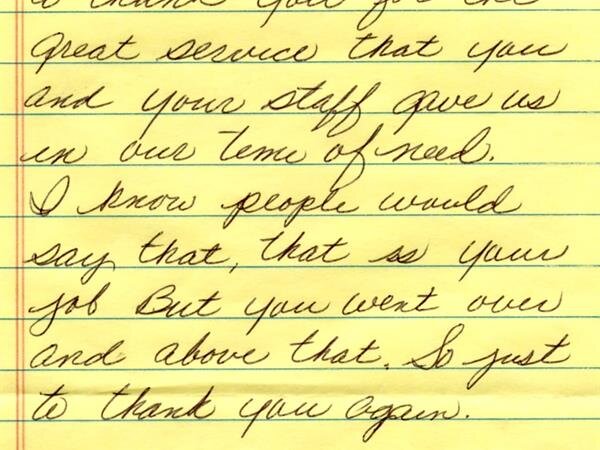 to thank you for the
great service that you
and your staff gave us
in our time of need.
I know people would
say that, that is your
job But you went over
and above that. So just
to thank you again.